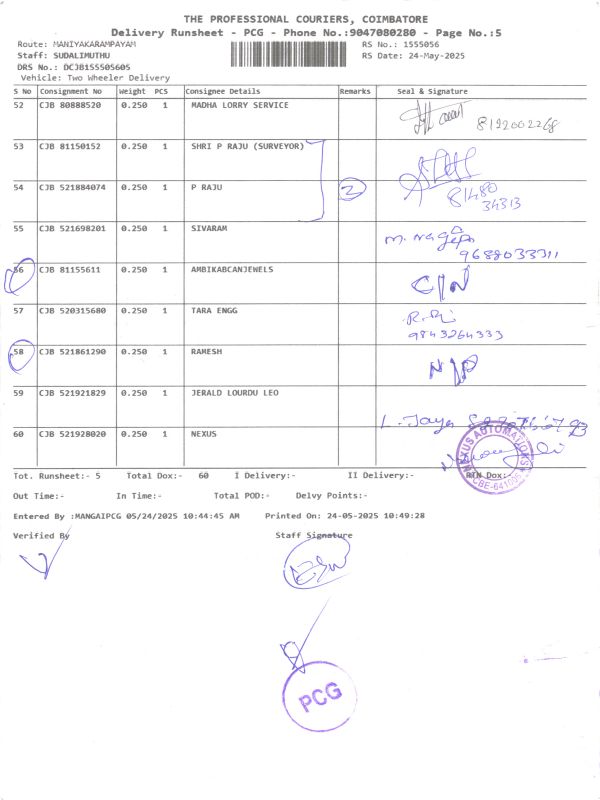 THE PROFESSIONAL COURIERS, COIMBATORE
Delivery Runsheet - PCG - Phone No.:9047080280 - Page No.:5
Route: MANIYAKARAMPAYAM RS No.: 1555056
Staff: SUDALIMUTHU RS Date: 24-May-2025
DRS No.: DCJB155505605
Vehicle: Two Wheeler Delivery
S No Consignment No Weight PCS Consignee Details Remarks Seal & Signature
52 CJB 80888520 0.250 1 MADHA LORRY SERVICE
8122002268
53 CJB 81150152 0.250 1 SHRI P RAJU (SURVEYOR)
54 CJB 521884074 0.250 1 P RAJU 2 81480
34313
55 CJB 521698201 0.250 1 SIVARAM
9688033311
56 CJB 81155611 0.250 1 AMBIKABCANJEWELS C/N
57 CJB 520315680 0.250 1 TARA ENGG
9843264333
58 CJB 521861290 0.250 1 RAMESH N/P
59 CJB 521921829 0.250 1 JERALD LOURDU LEO
L. Jaya
60 CJB 521928020 0.250 1 NEXUS
NEXUS AUTOMATION
CBE-641006
Tot. Runsheet:- 5 Total Dox:- 60 I Delivery:- II Delivery:- RTN Dox:-
Out Time:- In Time:- Total POD:- Delvy Points:-
Entered By :MANGAIPCG 05/24/2025 10:44:45 AM Printed On: 24-05-2025 10:49:28
Verified By Staff Signature
PCG